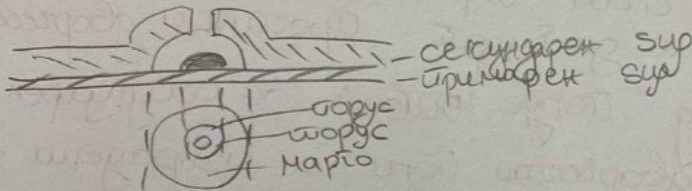 секундарен ѕид
примарен ѕид
порус
торус
марго